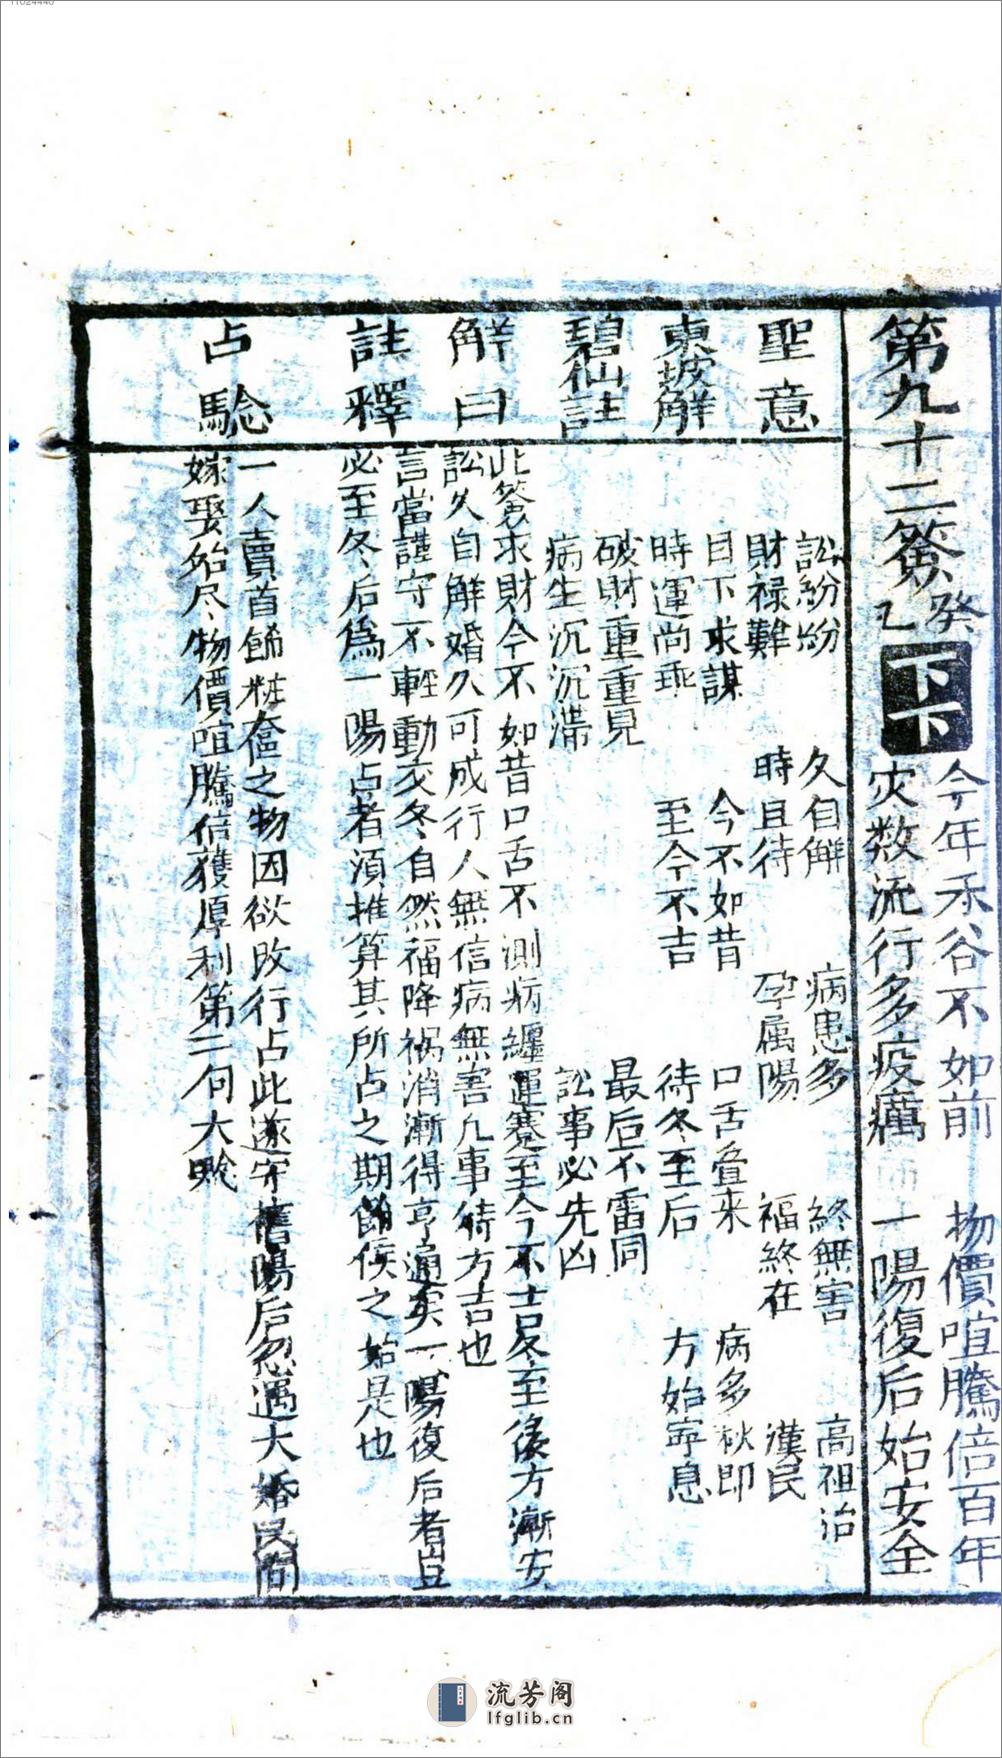 第九十二簽 癸乙 下下
今年禾谷不如前 物價喧騰倍百年
灾数流行多疫癘 一陽復后始安全
聖意
訟紛紛 久自解 病患多 終無害 高祖治
財禄難 時且待 孕属陽 福終在 漢民
東坡解
目下求謀 今不如昔 口舌叠来 病多秋即
時運尚乖 至今不吉 待冬至后 方始寧息
碧仙註
破財重重見 最后不雷同
病生沉沉滞 訟事必先凶
解曰
此簽求財今不如昔口舌不測病纏運蹇至今不吉冬至後方漸安
訟久自解婚久可成行人無信病無害凡事待方吉也
註釋
言當謹守不輕動交冬自然福降祸消漸得亨通矣一陽復后者豈
必至冬后為一陽占者湏推算其所占之期餙候之始是也
占驗
一人賣首餙粧奩之物因欲改行占此遂守舊陽后忽遇大婚民間
嫁娶始尽物價喧騰倍獲厚利第二句大驗
流芳阁
lfglib.cn
11024440